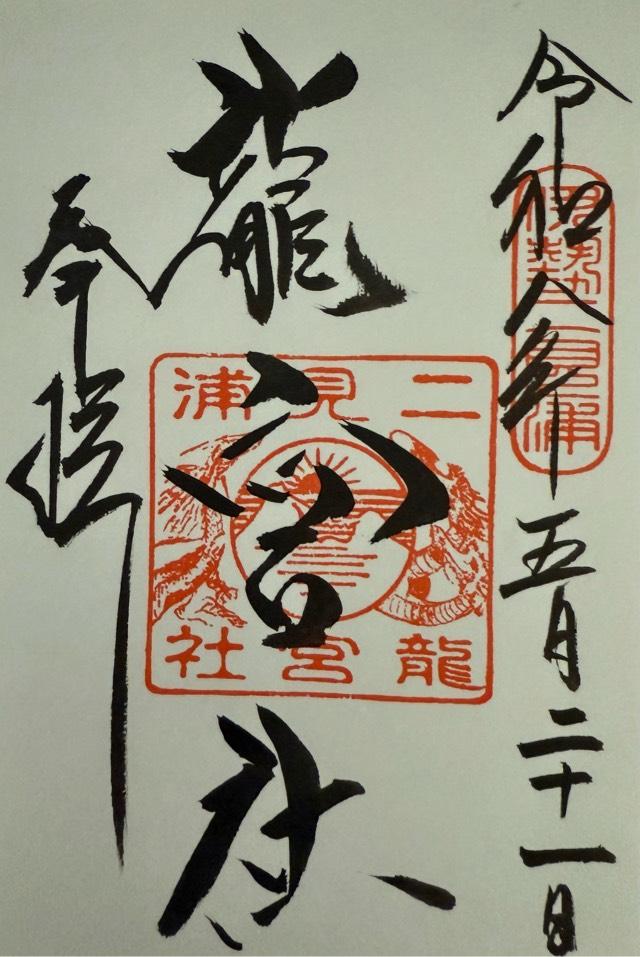 令和八年五月二十一日
伊勢二見浦
龍宮社
二見浦
龍宮社
奉拝